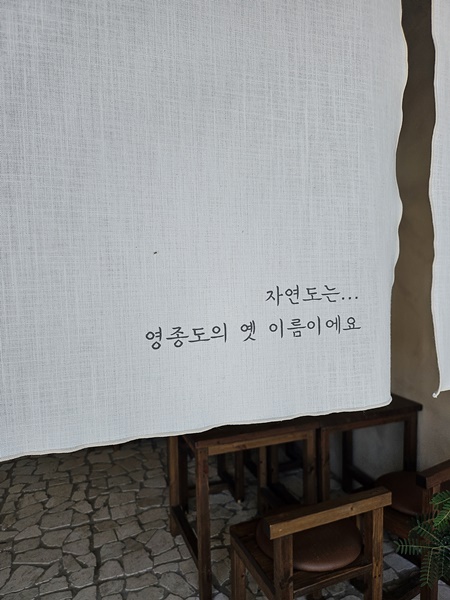 자연도는...
영종도의 옛 이름이에요